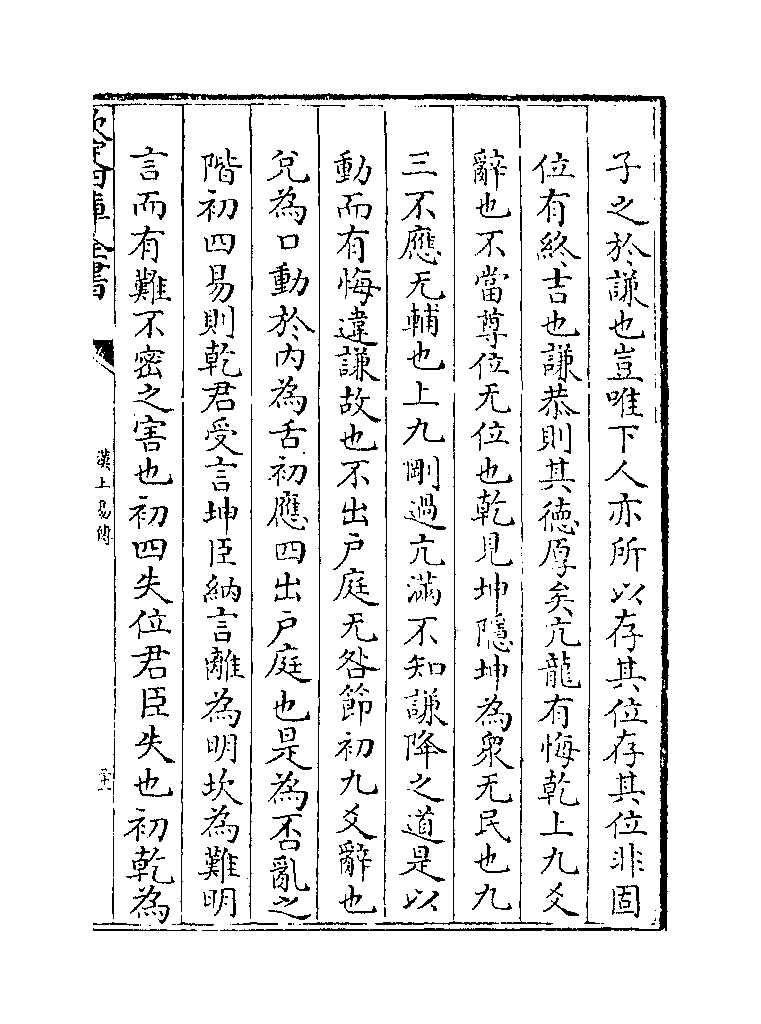 子之於謙也豈唯下人亦所以存其位存其位非固
位有終吉也謙恭則其德厚矣亢龍有悔乾上九爻
辭也不當尊位无位也乾見坤隱坤為衆无民也九
三不應无輔也上九剛過亢滿不知謙降之道是以
動而有悔違謙故也不出戸庭无咎節初九爻辭也
兌為口動於内為舌初應四出戸庭也是為否亂之
階初四易則乾君受言坤臣納言離為明坎為難明
言而有難不密之害也初四失位君臣失也初乾為
欽定四庫全書
漢上易傳